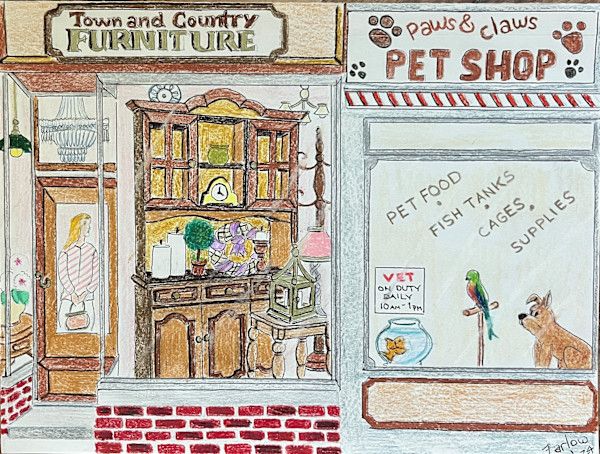 Town and Country
FURNITURE
Paws & claws
PET SHOP
PET FOOD
FISH TANKS
CAGES
SUPPLIES
VET
ON DUTY
DAILY
10AM-1PM
Farlow